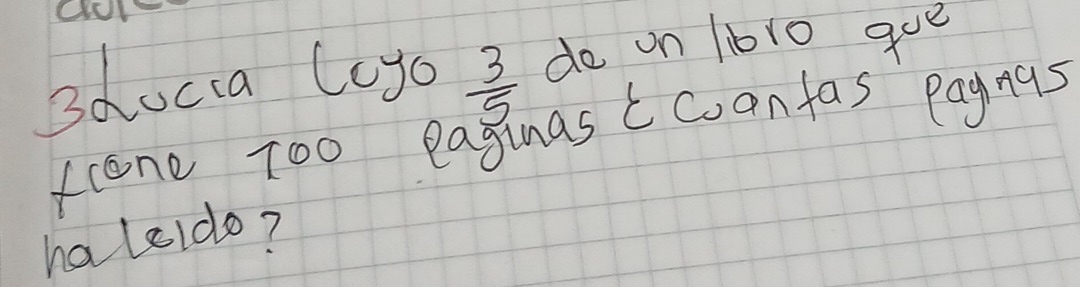 3 Lucia leyo 3/5 de un libro que
tiene 100 paginas ¿Cuantas paginas
ha leido?